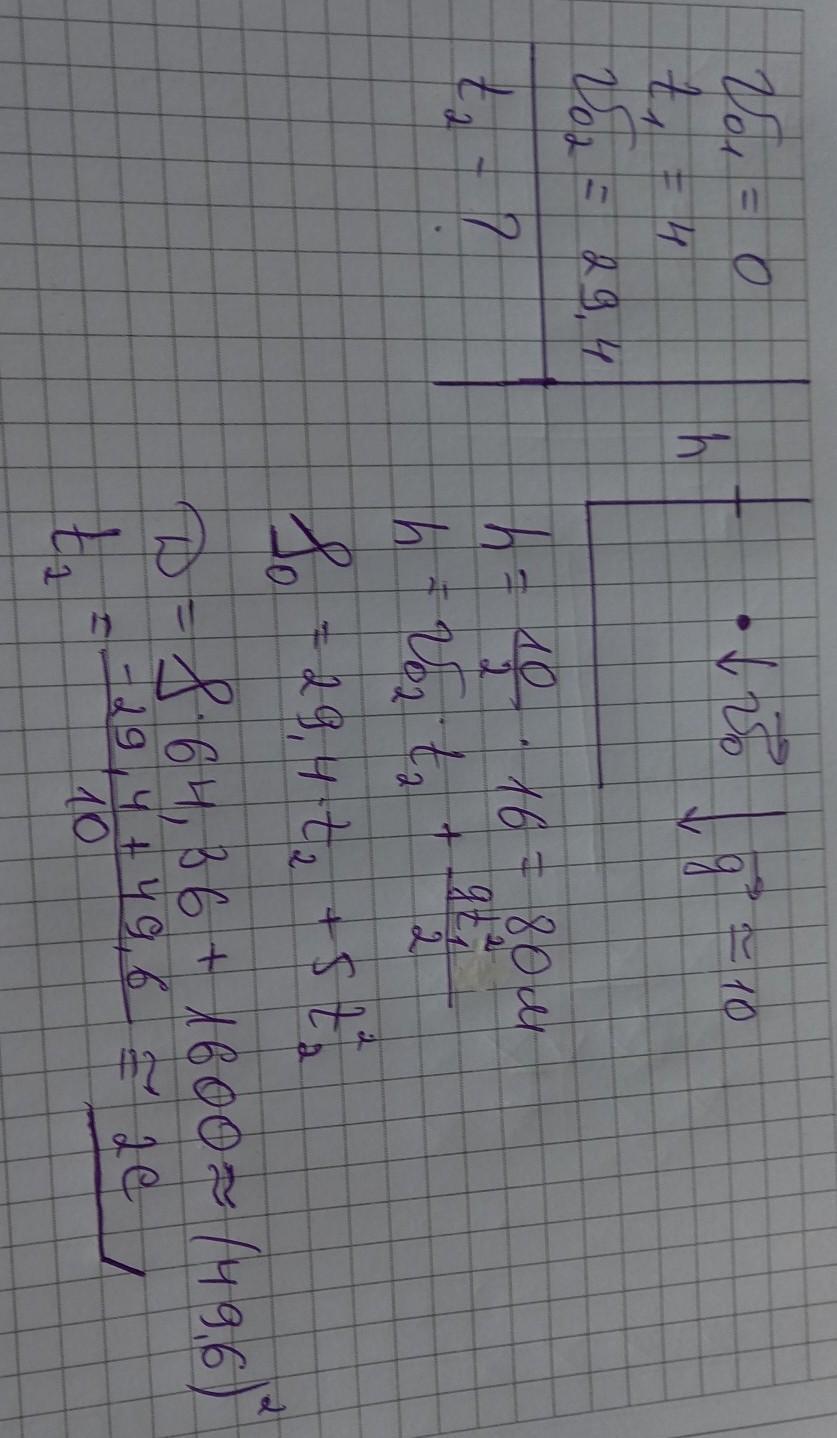 V₀₁ = 0
t₁ = 4
V₀₂ = 29,4
t₂ - ?
h
V⃗₀
g⃗ ≃ 10
h = 10/2 · 16 = 80 м
h = V₀₂ · t₂ + gt₁²/2
80 = 29,4 · t₂ + 5t₂²
D = 864,36 + 1600 ≈ (49,6)²
t₂ = (-29,4 + 49,6)/10 ≈ 2c